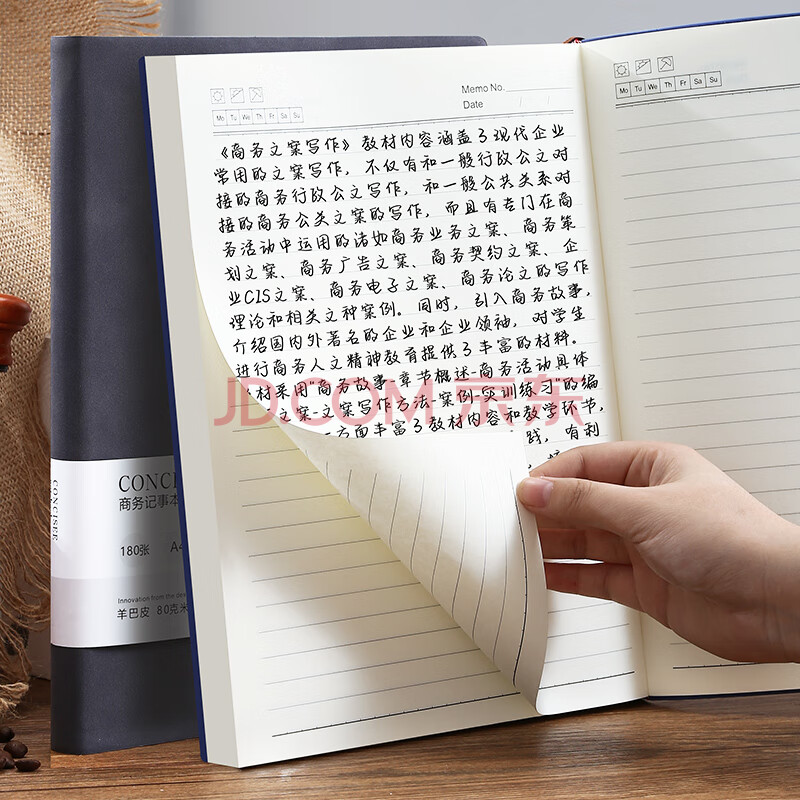 Memo No.
Date / /
Mo Tu We Th Fr Sa Su
《商务文案写作》教材内容涵盖了现代企业
常用的文案写作，不仅有和一般行政公文对
接的商务行政公文写作，和一般公共关系对
接的商务公关文案的写作，而且有专门在商
务活动中运用的诸如商务业务文案、商务策
划文案、商务广告文案、商务契约文案、企
业CIS文案、商务电子文案、商务论文的写作
理论和相关文种案例。同时，引入商务故事，
介绍国内外著名的企业和企业领袖，对学生
进行商务人文精神教育提供了丰富的材料。
材采用"商务故事-章节概述-商务活动具体
文案-文案写作方法-案例-实训练习"的编
方面丰富了教材内容和教学环节，
践，有利
Mo Tu We Th Fr Sa Su
JD.COM 京东
CONCISEE
CONCI
商务记事本
180张 A4
Innovation from the de
羊巴皮 80克米